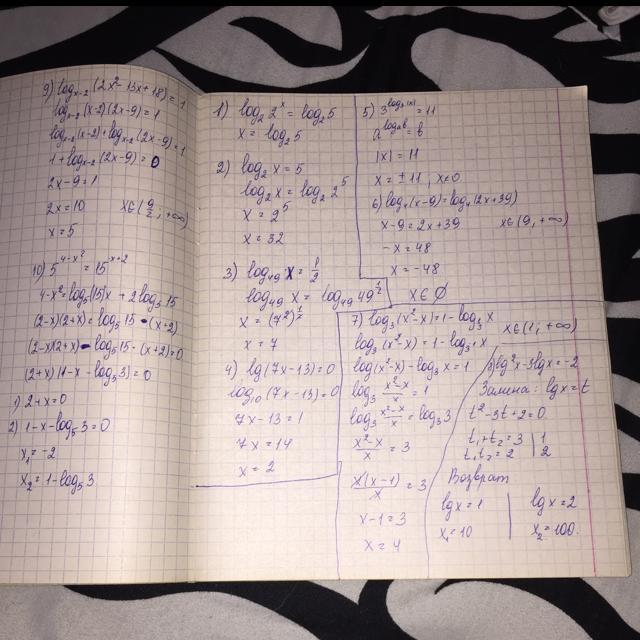 9) log_{x-2}(2x²-13x+18)=1
log_{x-2}(x-2)(2x-9)=1
log_{x-2}(x-2)+log_{x-2}(2x-9)=1
1+log_{x-2}(2x-9)=0
2x-9=1
2x=10 x∈(9/2,+∞)
x=5
10) 5^{4-x²}=15^{x+2}
4-x²=log₅(15)x+2log₅15
(2-x)(2+x)=log₅15-(x+2)
(2-x)(2+x)-log₅15-(x+2)=0
(2+x)(1-x-log₅3)=0
1) 2+x=0
2) 1-x-log₅3=0
x₁=-2
x₂=1-log₅3
1) log₂2^x=log₂5
x=log₂5
2) log₂x=5
log₂x=log₂2⁵
x=2⁵
x=32
3) log₄₉x=1/2
log₄₉x=log₄₉49^{1/2}
x=(7²)^{1/2}
x=7
4) lg(7x-13)=0
log₁₀(7x-13)=0
7x-13=1
7x=14
x=2
5) 3^{log₃|x|}=11
a^{log_a b}=b
|x|=11
x=±11, x≠0
6) log₄(x-9)=log₄(2x+39)
x-9=2x+39 x∈(9,+∞)
-x=48
x=-48
x∈∅
7) log₃(x²-x)=1-log₃x
x∈(1,+∞)
log₃(x²-x)=1-log₃x
log(x²-x)-log₃x=1
log₃(x²-x)/x=1
log₃(x²-x)/x=log₃3
(x²-x)/x=3
x(x-1)/x=3
x-1=3
x=4
8) lg²x-3lgx=-2
Замена: lgx=t
t²-3t+2=0
t₁+t₂=3 | 1
t₁·t₂=2 | 2
Возврат
lgx=1 | lgx=2
x₁=10 | x₂=100.